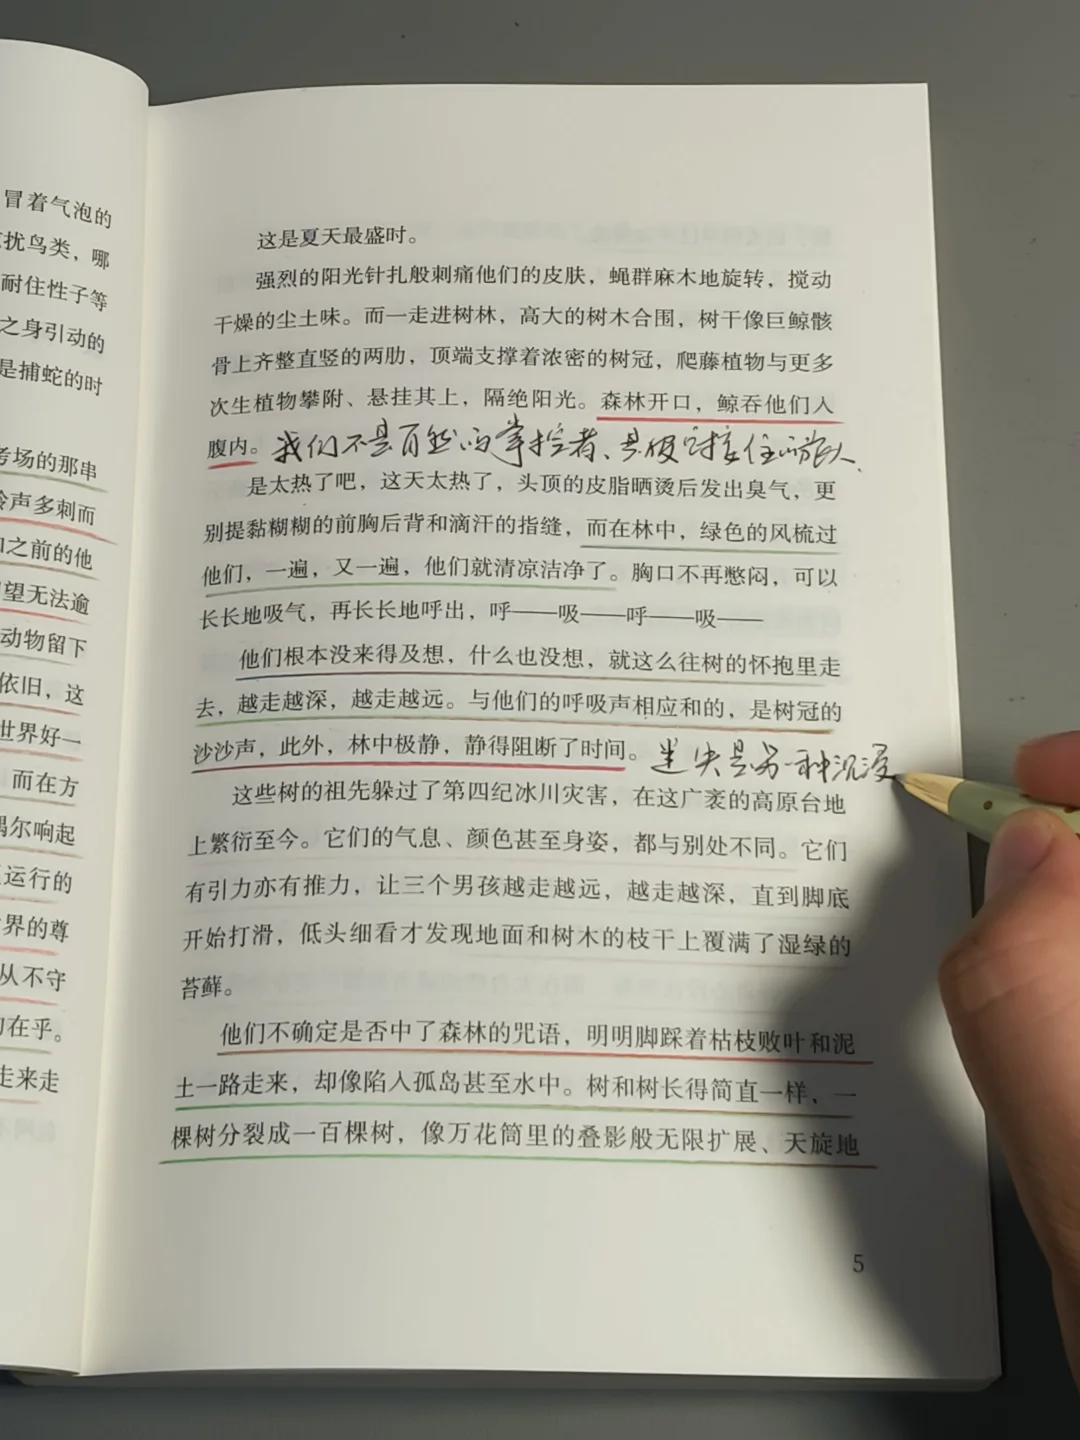 冒着气泡的
扰鸟类，哪
耐住性子等
之身引动的
是捕蛇的时
考场的那串
铃声多刺而
口之前的他
望无法逾
动物留下
依旧，这
世界好一
而在方
偶尔响起
运行的
界的尊
从不守
在乎。
走来走
这是夏天最盛时。
强烈的阳光针扎般刺痛他们的皮肤，蝇群麻木地旋转，搅动
干燥的尘土味。而一走进树林，高大的树木合围，树干像巨鲸骸
骨上齐整直竖的两肋，顶端支撑着浓密的树冠，爬藤植物与更多
次生植物攀附、悬挂其上，隔绝阳光。森林开口，鲸吞他们入
腹内。我们不是自然的掌控者、是被它接住的旅人。
是太热了吧，这天太热了，头顶的皮脂晒烫后发出臭气，更
别提黏糊糊的前胸后背和滴汗的指缝，而在林中，绿色的风梳过
他们，一遍，又一遍，他们就清凉洁净了。胸口不再憋闷，可以
长长地吸气，再长长地呼出，呼——吸——呼——吸——
他们根本没来得及想，什么也没想，就这么往树的怀抱里走
去，越走越深，越走越远。与他们的呼吸声相应和的，是树冠的
沙沙声，此外，林中极静，静得阻断了时间。迷失是另一种沉浸
这些树的祖先躲过了第四纪冰川灾害，在这广袤的高原台地
上繁衍至今。它们的气息、颜色甚至身姿，都与别处不同。它们
有引力亦有推力，让三个男孩越走越远，越走越深，直到脚底
开始打滑，低头细看才发现地面和树木的枝干上覆满了湿绿的
苔藓。
他们不确定是否中了森林的咒语，明明脚踩着枯枝败叶和泥
土一路走来，却像陷入孤岛甚至水中。树和树长得简直一样，一
棵树分裂成一百棵树，像万花筒里的叠影般无限扩展、天旋地
5